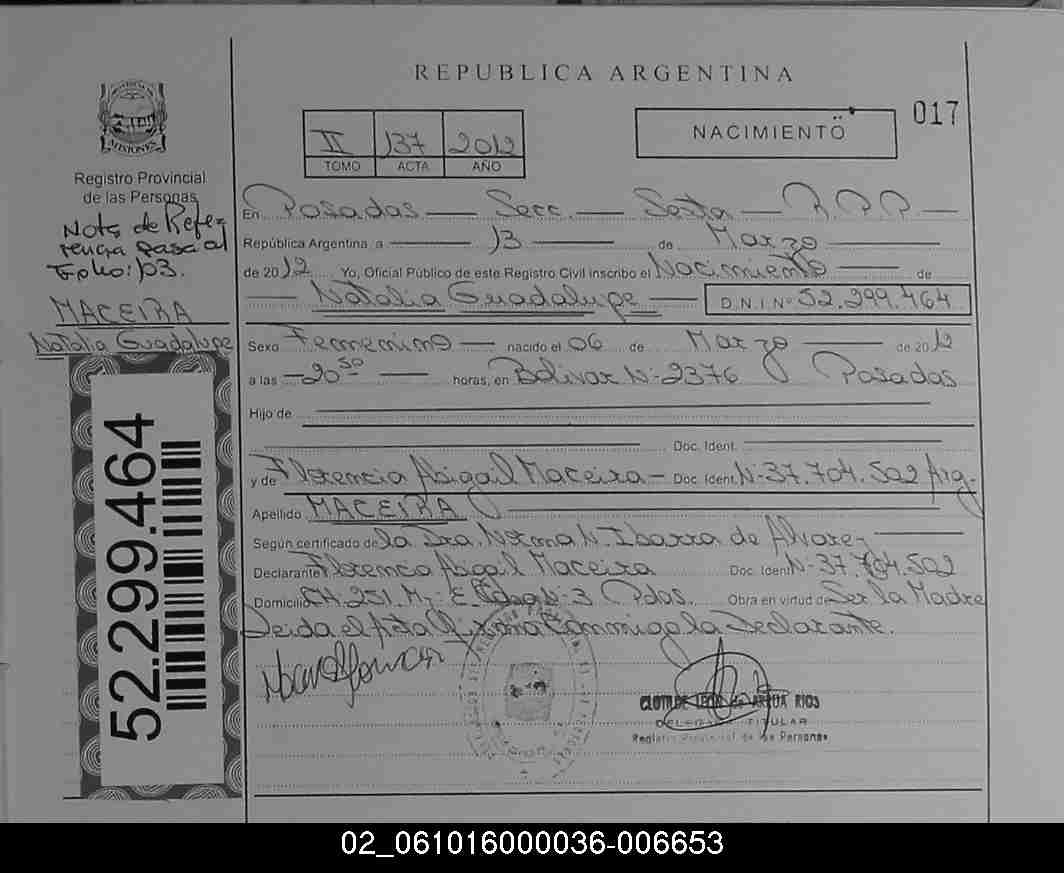 REPUBLICA ARGENTINA
017
II 137 2012
TOMO ACTA AÑO
NACIMIENTO
MISIONES
Registro Provincial
de las Personas
Nota de Refe-
rencia pasa al
Folio: 103.
MACEIRA
Natalia Guadalupe
52.299.464
En Posadas — Secc. — Sexta — R.P.P —
República Argentina a — 13 — de Marzo —
de 2012 Yo, Oficial Público de este Registro Civil inscribo el Nacimiento — de
— Natalia Guadalupe — D.N.I Nº 52.299.464
Sexo Femenino — nacido el 06 de Marzo — de 2012
a las —20 50 — horas, en Bolivar Nº 2376 Posadas
Hijo de
Doc. Ident.
y de Florencia Abigail Maceira — Doc. Ident. Nº 37.704.502 Arg.
Apellido MACEIRA
Según certificado de la Dra. Norma N. Ibarra de Alvarez
Declarante Florencia Abigail Maceira Doc. Ident. Nº 37.704.502
Domicilio CH. 251. Mz. E. Casa Nº 3 Pdas. Obra en virtud de Ser la Madre
Leida el Acta Firma Conmigo la Declarante.
CLOTILDE LEON de ARRUA RIOS
DELEGADA TITULAR
Registro Provincial de las Personas
02_061016000036-006653